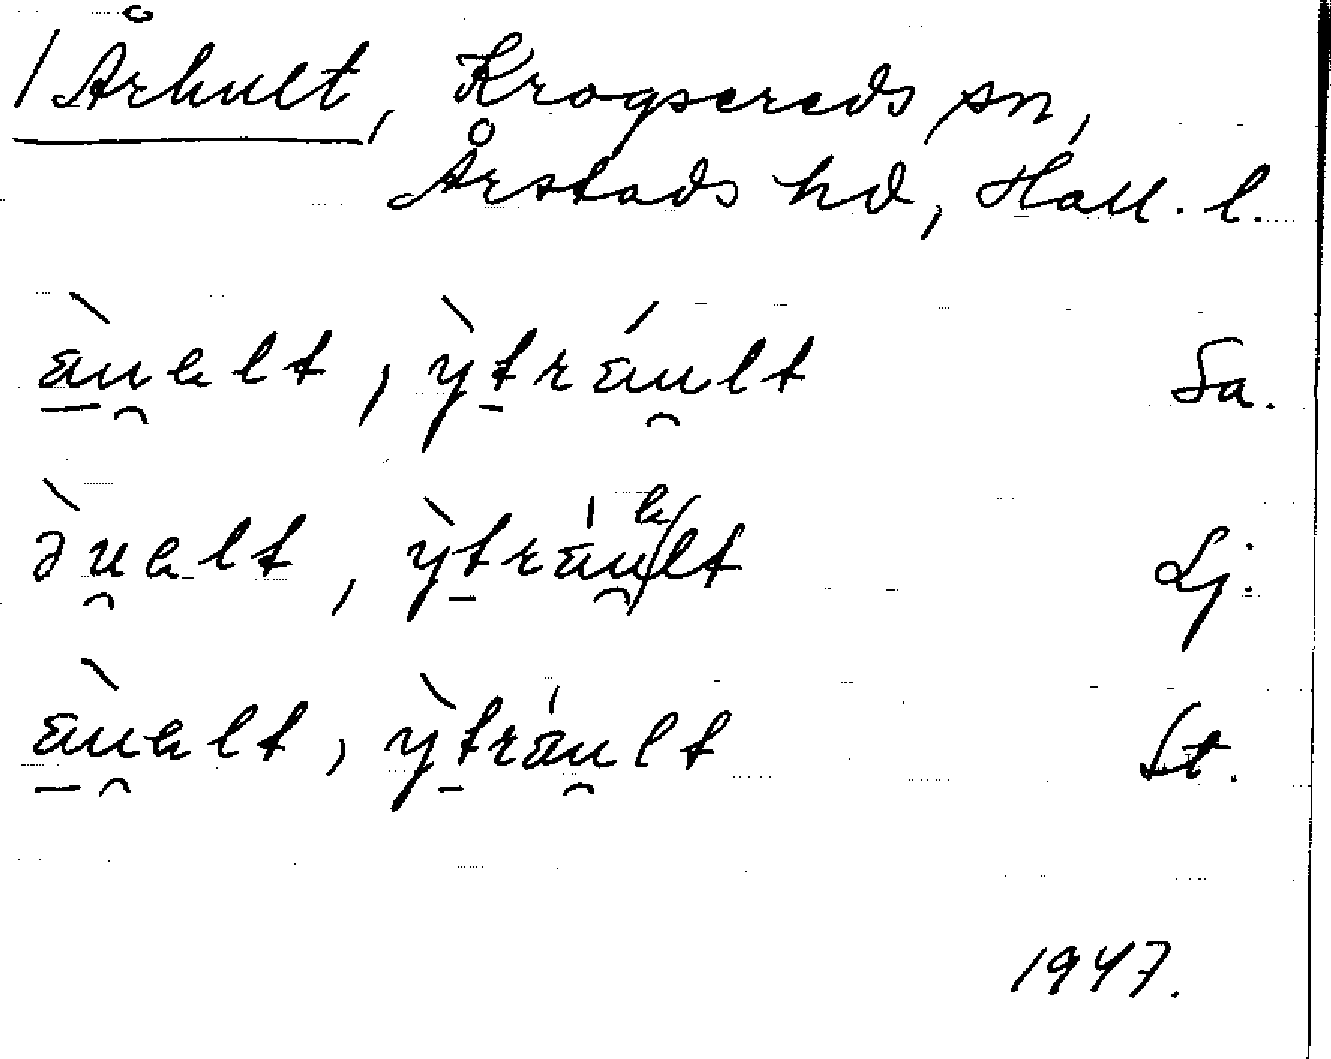 / Århult, Krogsereds sn,
Årstads hd, Hall. l.
àu̯alt, ỳtráu̯lt Sa.
àu̯alt, ỳtráu̯alt Lj.
àu̯alt, ỳtráu̯lt St.
1947.